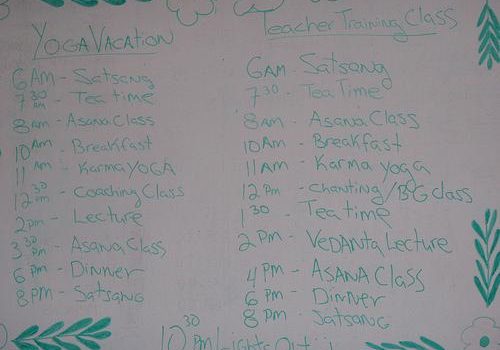 Yoga Vacation
6 AM - Satsang
7 30 AM - Tea time
8 AM - Asana Class
10 AM - Breakfast
11 AM - Karma YOGA
12 30 PM - Coaching Class
2 PM - Lecture
3 30 PM - Asana Class
6 PM - Dinner
8 PM - Satsang
Teacher Training Class
6 AM - Satsang
7 30 - Tea Time
8 AM - Asana Class
10 AM - Breakfast
11 AM - Karma yoga
12 PM - chanting/BG class
1 30 - Tea time
2 PM - VEDANTA Lecture
4 PM - ASANA Class
6 PM - Dinner
8 PM - Satsang
10 30 PM Lights Out!